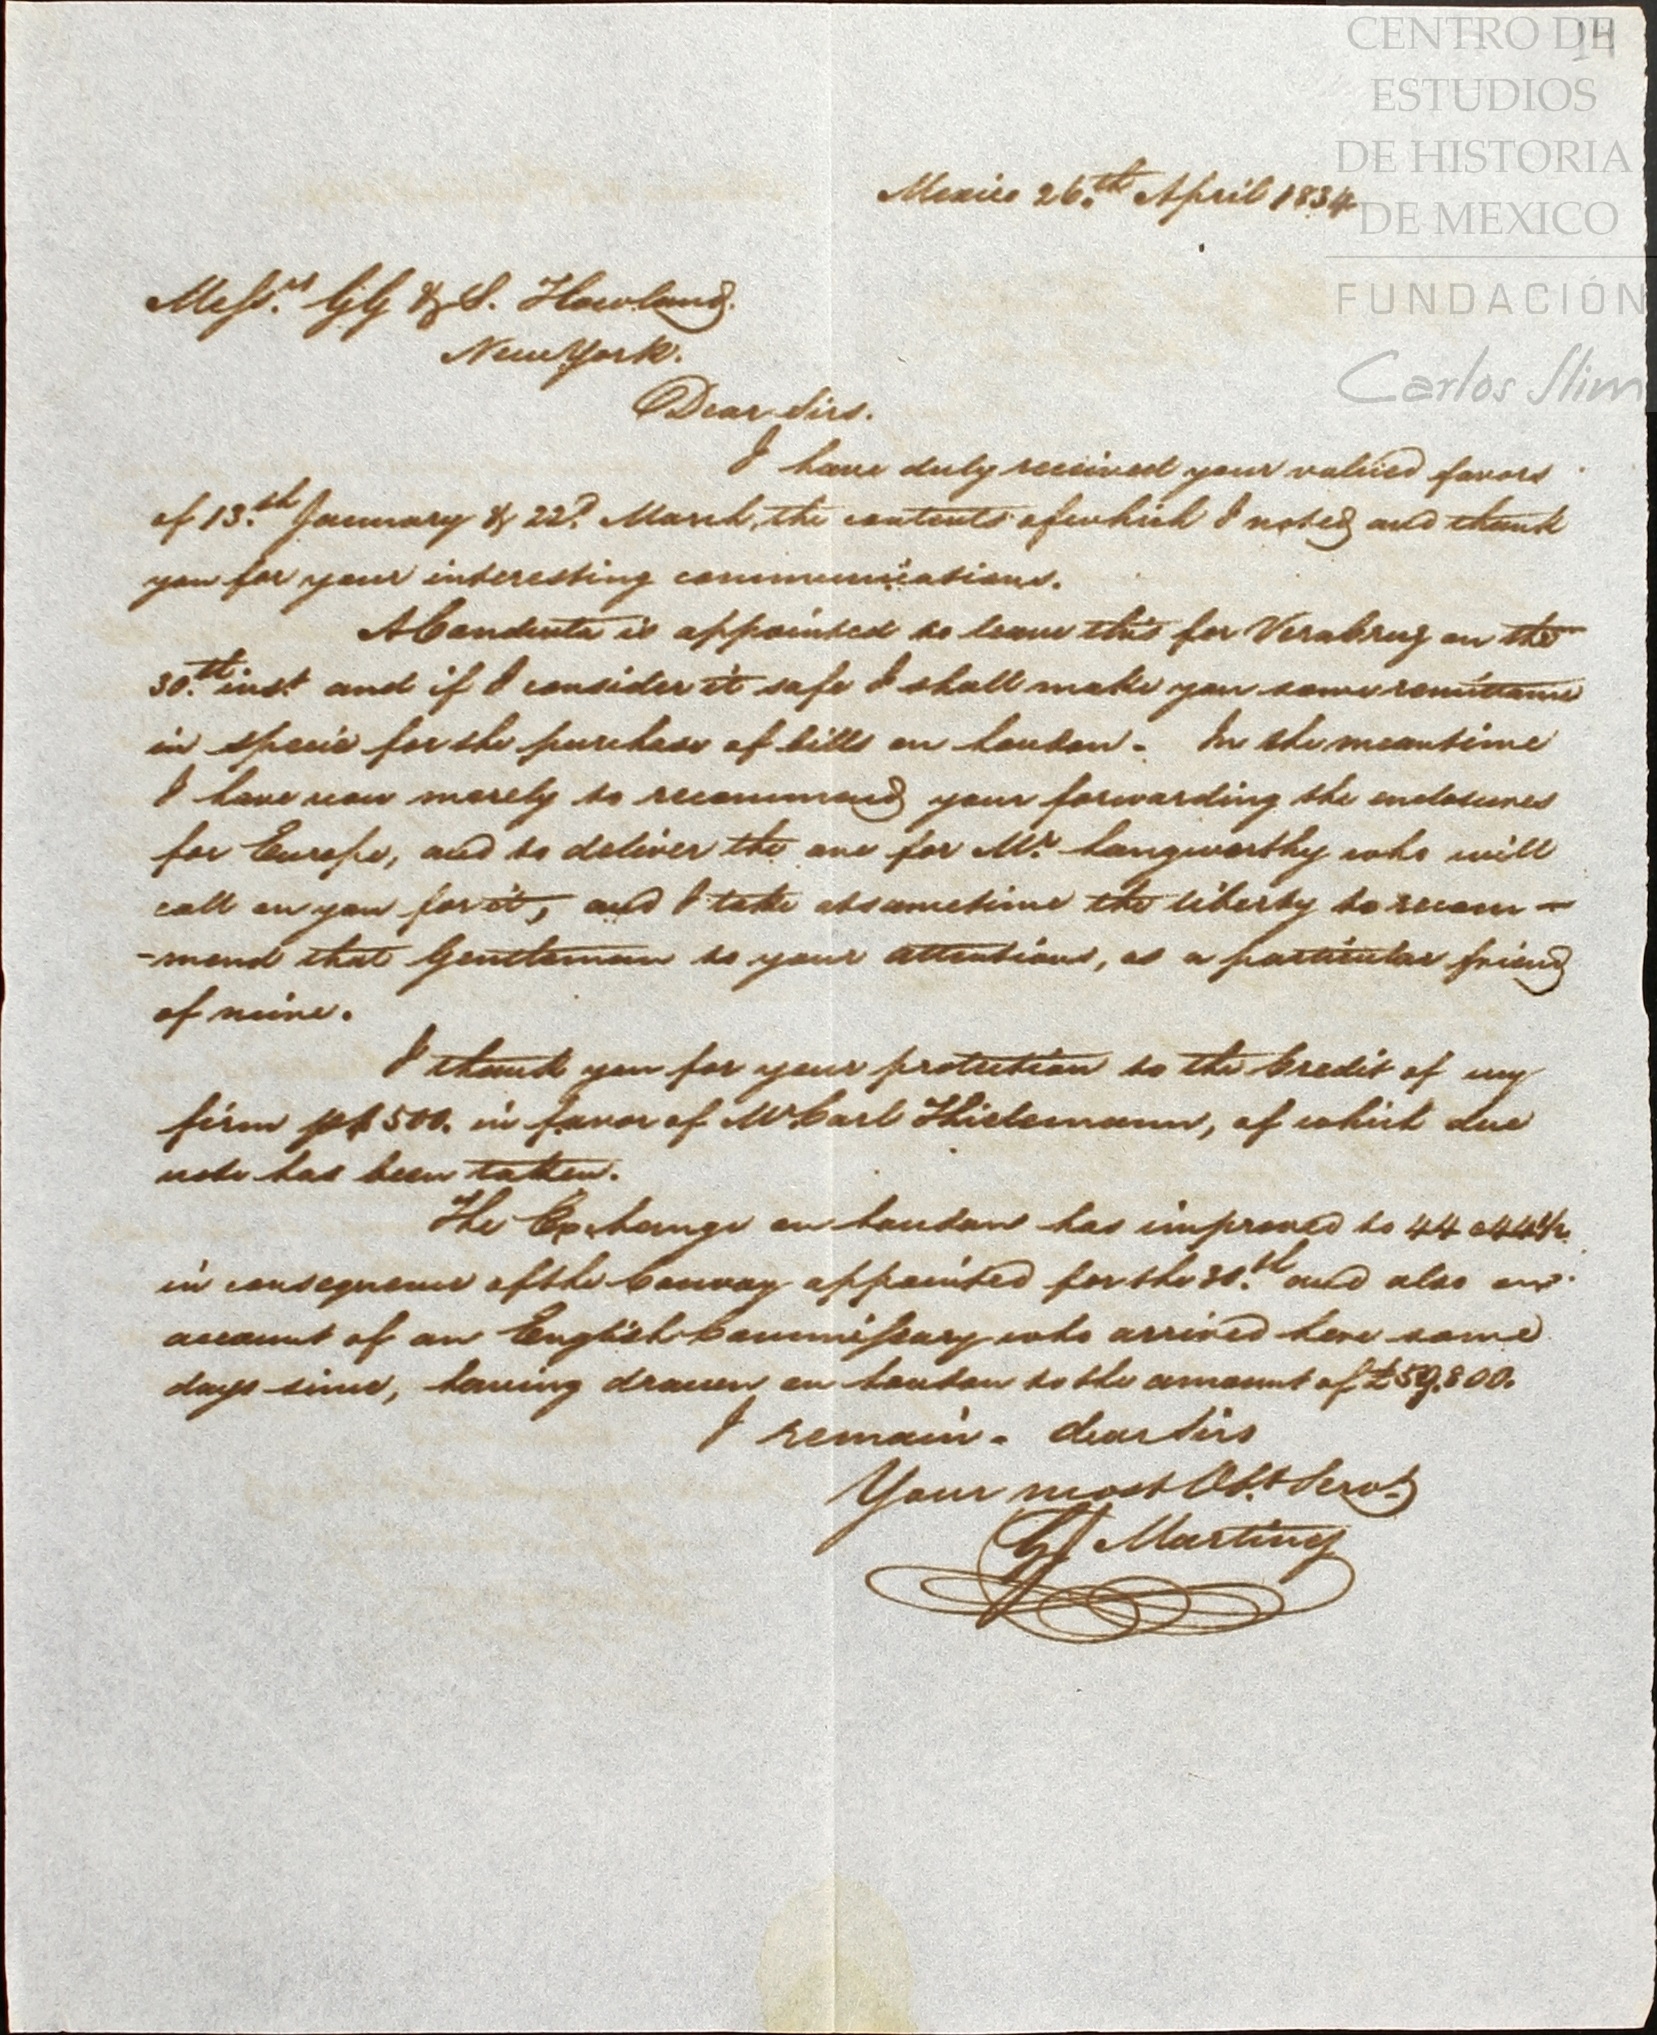 14
CENTRO DE
ESTUDIOS
DE HISTORIA
DE MEXICO
FUNDACIÓN
Carlos Slim
Mexico 26.th April 1834
Messrs. GG & S. Howland.
New York.
Dear Sirs.
I have duly received your valued favors
of 13.th January & 22d. March, the contents of which I noted and thank
you for your interesting communications.
A Conducta is appointed to leave this for Vera Cruz on the
30.th inst. and if I consider it safe I shall make you some remittance
in specie for the purchase of bills on London. In the meantime
I have now merely to recommend your forwarding the enclosures
for Europe, and to deliver the one for Mr. Langworthy who will
call on you for it, and I take at sametime the liberty to recom-
-mend that Gentleman to your attentions, as a particular friend
of mine.
I thank you for your protection to the Credit of my
firm $500. in favor of Mr. Carl Thielemann, of which due
note has been taken.
The Exchange on London has improved to 44 a 44½
in consequence of the Convoy appointed for the 30.th and also on
account of an English Commissary who arrived here some
days since, having drawn on London to the amount of £59.800.
I remain. dear Sirs
Your most Obt. Servt.
Martinez